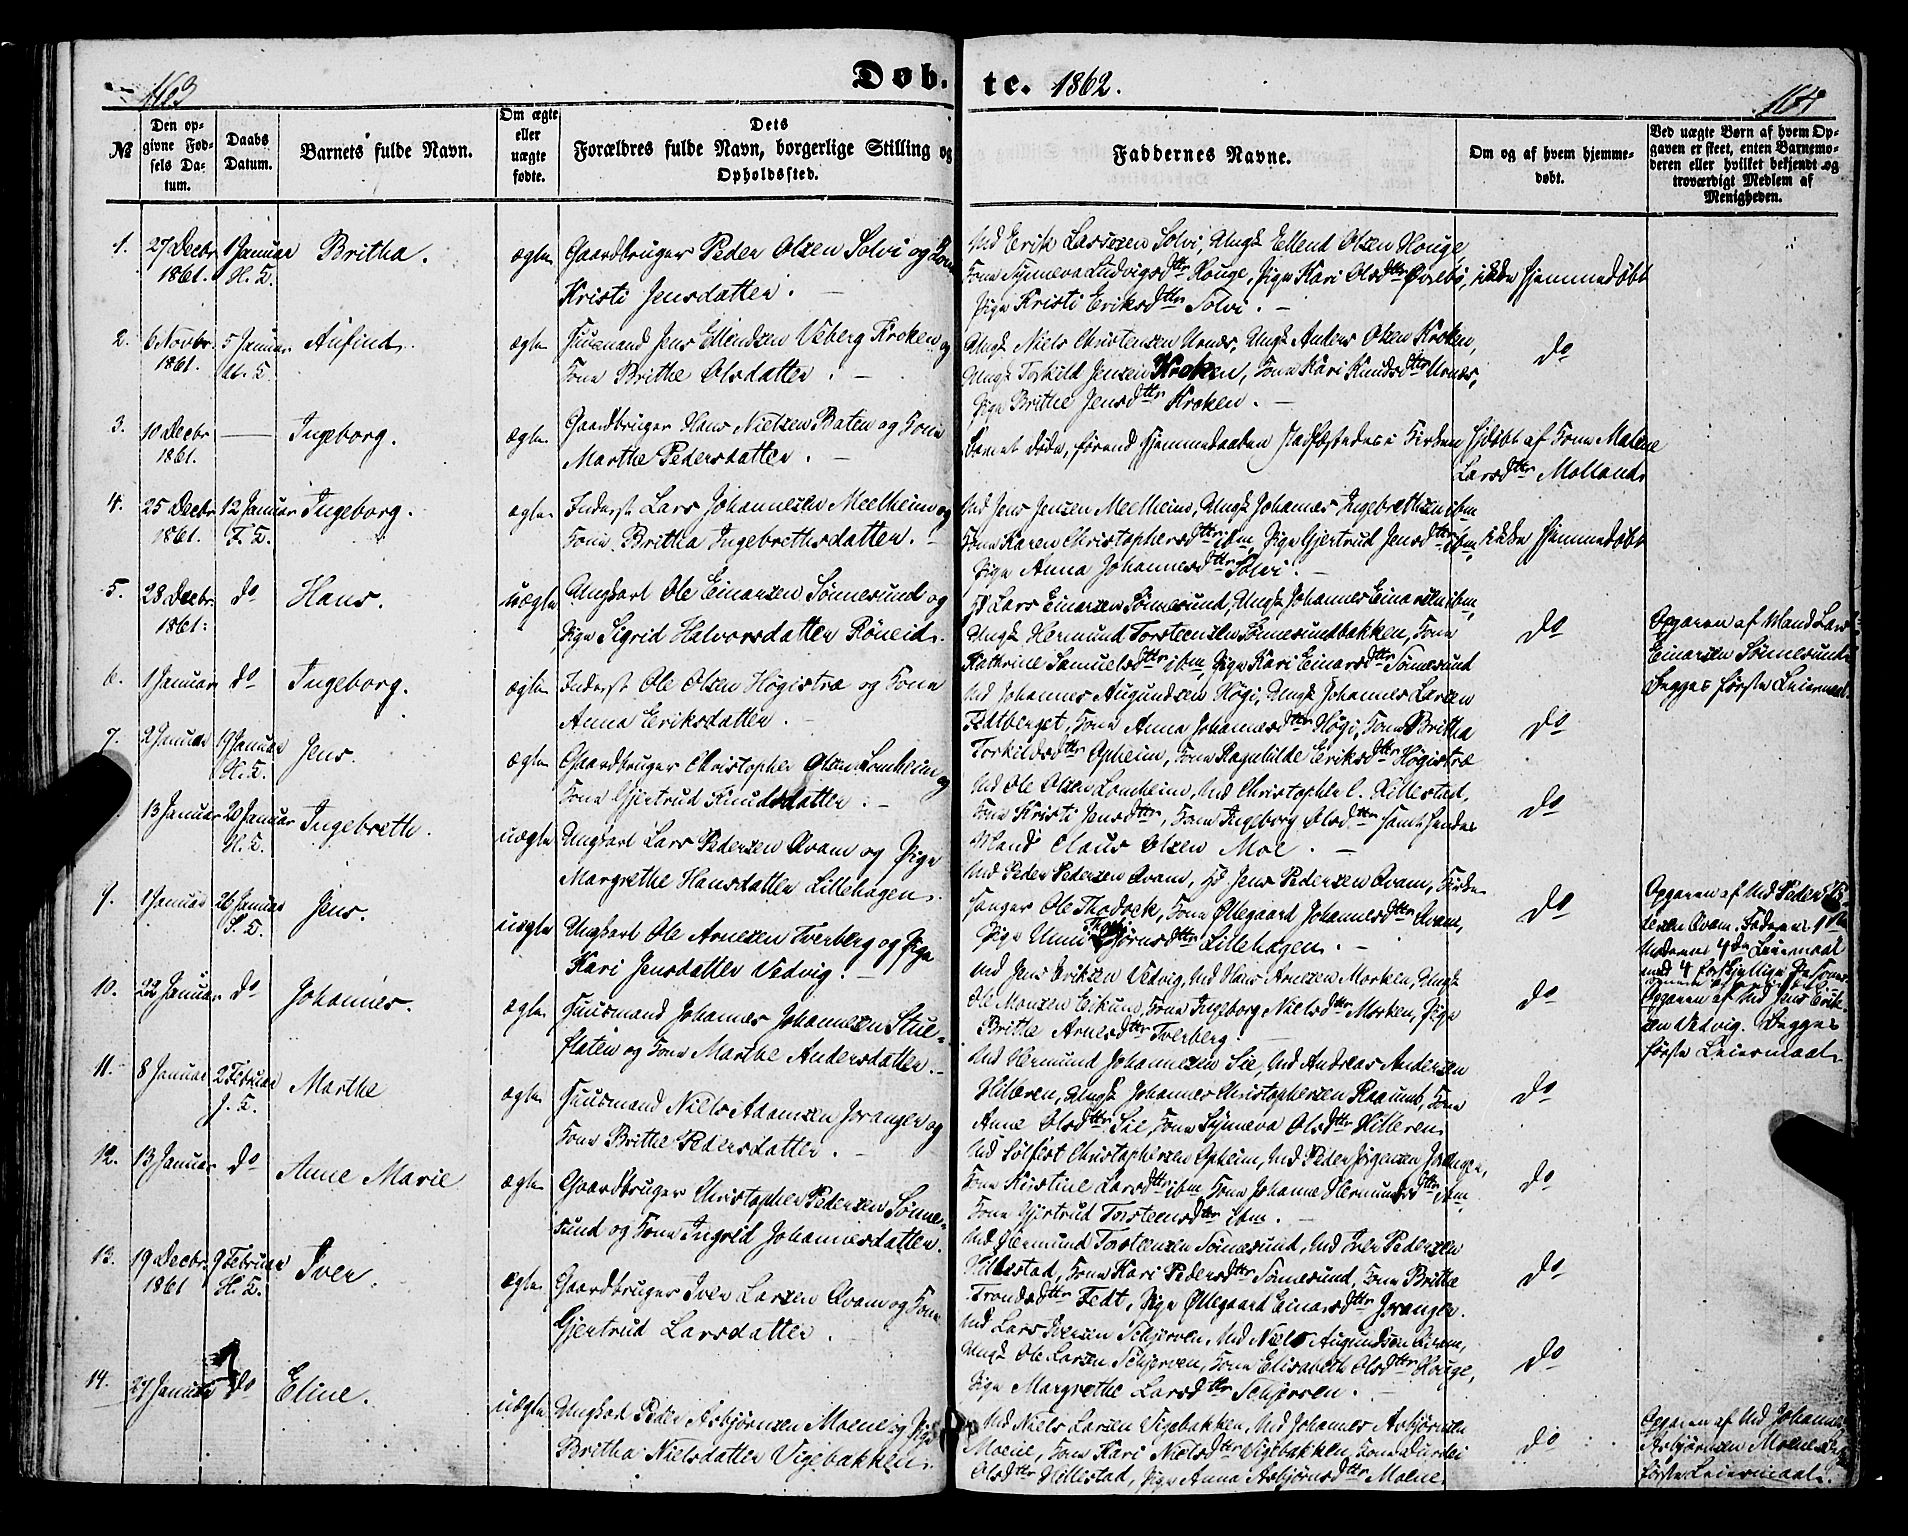 163
Døb.
te. 1862.
164
№
Den op-
givne Fød-
sels Da-
tum.
Daabs
Datum.
Barnets fulde Navn.
Om ægte
eller
uægte
fødte.
Dets
Forældres fulde Navn, borgerlige Stilling og
Opholdssted.
Faddernes Navne.
Om og af hvem hjemme-
døbt.
Ved uægte Børn af hvem Op-
gaven er skeet, enten Barnemo-
deren eller hvilket bekjendt og
troværdigt Medlem af
Menigheden.
1. 27 Decbr 1 Januar Britha. ægte Gaardbruger Peder Olsen Solvi og Kone
1861. H. T. Kristi Jensdatter.
Md Erik Lassesen Solvi, Ungk Ellend Olsen Houge,
Kone Synneva Ludvigsdttr Houge, Pige Kari Olsdttr Øvrebø, ikke hjemmedøbt
Pige Kristi Eriksdttr Solvi.
2. 6 Novbr. 5 Januar Anfind. ægte Huusmand Jens Ellendsen Veberg Kroken og
1861. U. T. Kone Brithe Olsdatter.
Ungk Niels Christensen Urnes, Ungk Anders Olsen Kroken,
Ungk Torkild Jensen Kroken, Kone Kari Knudsdttr Urnes, do
Pige Brithe Jensdttr Kroken.
3. 10 Decbr Ingeborg. ægte Gaardbruger Hans Nielsen Baten og Kone
1861. Marthe Pedersdatter.
Barnet døde, førend hjemmedaaben stadfæstedes i Kirken hjdøbt af Kone Malene
Larsdttr Mollands
4. 25 Decbr 12 Januar Ingeborg. ægte Inderst Lars Johannesen Meelheim og
1861. F. T. Kone Britha Ingebrethsdatter.
Md Jens Jensen Meelheim, Ungk Johannes Ingebrethsen ibm
Kone Karen Christophersdttr ibm, Pige Gjertrud Jensdttr ibm, ikke hjemmedøbt
Pige Anna Johannesdttr Solvi.
5. 28 Decbr. do Hans. uægte Ungkarl Ole Einarsen Sønnesund og
1861. Pige Sigrid Halvorsdatter Røneid.
Lars Einarsen Sønnesund, Ungk Johannes Einarsen ibm,
Ungk Hermund Torsteensen Sønnesundbakken, Kone do
Kathrine Samuelsdttr ibm, Pige Kari Einarsdttr Sønnesund
Opgaven af Mand Lars
Einarsen Sønnesund
Begges første Leiermaal.
6. 1 Januar do Ingeborg. ægte Inderst Ole Olsen Høgistræ og Kone
Anna Eriksdatter.
Md Johannes Augundsen Høgi, Ungk Johannes Larsen
Fedtberget, Kone Anna Johannesdttr Høgi, Kone Britha do
Torkildsdttr Opheim, Kone Ragnhilde Eriksdttr Høgistræ
7. 2 Januar 19 Januar Jens. ægte Gaardbruger Christopher Olsen Lomheim og
H. T. Kone Gjertrud Knudsdatter.
Md Ole Olsen Lomheim, Md Christopher C. Hillestad,
Kone Kristi Jensdttr, Kone Ingeborg Olsdttr samt hendes do
Mand Claus Olsen Moe.
13 Januar 20 Januar Ingebreth. uægte Ungkarl Lars Pedersen Qvam og Pige
H. T. Margrethe Hansdatter Lillehagen.
Md Peder Pedersen Qvam, Jens Pedersen Qvam, Kirke-
sanger Ole Thodock, Kone Øllegaard Johannesdttr Qvam, do
Pige Unni Lillehagen.
Opgaven af Md Peder Pe-
dersen Qvam. Faderens 1ste
Moderens 4de Leiermaal
med 4 forskjellige Personer
9. 1 Januar 26 Januar Jens. uægte Ungkarl Ole Arnesen Tverberg og Pige
S. T. Kari Jensdatter Vedvig.
Md Jens Eriksen Vedvig, Md Hans Arnesen Morken, Ungk
Ole Monsen Eikum, Kone Ingeborg Nielsdttr Morken, Pige do
Brithe Arnesdttr Tverberg.
Opgaven af Md Jens Erik-
sen Vedvig. Begges
første Leiermaal.
10. 22 Januar do Johannes. ægte Huusmand Johannes Johannesen Stue-
flaten og Kone Marthe Andersdatter.
Md Hermund Johannesen Sie, Md Andreas Andersen
Hilleren, Ungk Johannes Christophersen Raaum, Kone do
Anne Olsdttr Sie, Kone Synneva Olsdttr Hilleren
11. 8 Januar 2 Februar Marthe ægte Huusmand Niels Adamsen Joranger og
J. T. Kone Brithe Pedersdatter.
Md Solfest Christophersen Opheim, Md Peder Jørgensen Joranger,
Kone Kristine Larsdttr ibm, Kone Johanne Hermundsdttr ibm, do
Kone Gjertrud Torsteensdttr ibm.
12. 13 Januar do Anne Marie ægte Gaardbruger Christopher Pedersen Sønne-
sund og Kone Ingrid Johannesdatter.
Md Hermund Torsteensen Sønnesund, Md Iver Pedersen
Hillestad, Kone Kari Pedersdttr Sønnesund, Kone Brithe do
Trondsdttr Fedt, Pige Øllegaard Einarsdttr Joranger.
13. 19 Decbr. 9 Februar Iver. ægte Gaardbruger Iver Larsen Qvam og Kone
1861 H. T. Gjertrud Larsdatter.
Md Lars Iversen Schjerven, Md Niels Augundsen Qvam,
Ungk Ole Larsen Schjerven, Kone Elisabeth Olsdttr Houge, do
Pige Margrethe Larsdttr Schjerven.
14. 27 Januar do Eline. uægte Ungkarl Peder Asbjørnsen Moene og Pige
Britha Nielsdatter Vigebakken.
Md Niels Larsen Vigebakken, Md Johannes Asbjørnsen
Moene, Kone Kari Nielsdttr Vigebakken, Kone Durdei do
Olsdttr Hillestad, Pige Anna Asbjørnsdttr Moene
Opgaven af Md Johannes
Asbjørnsen Moene. Begges
første Leiermaal.